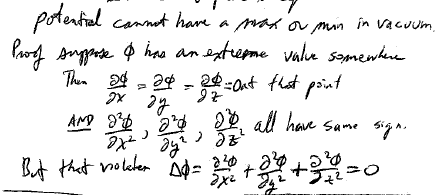 potential cannot have a max or min in vacuum.
Proof suppose ϕ has an extreme value somewhere
Then ∂ϕ/∂x = ∂ϕ/∂y = ∂ϕ/∂z = 0 at that point
AND ∂²ϕ/∂x², ∂²ϕ/∂y², ∂²ϕ/∂z² all have same sign.
But that violates Δϕ = ∂²ϕ/∂x² + ∂²ϕ/∂y² + ∂²ϕ/∂z² = 0